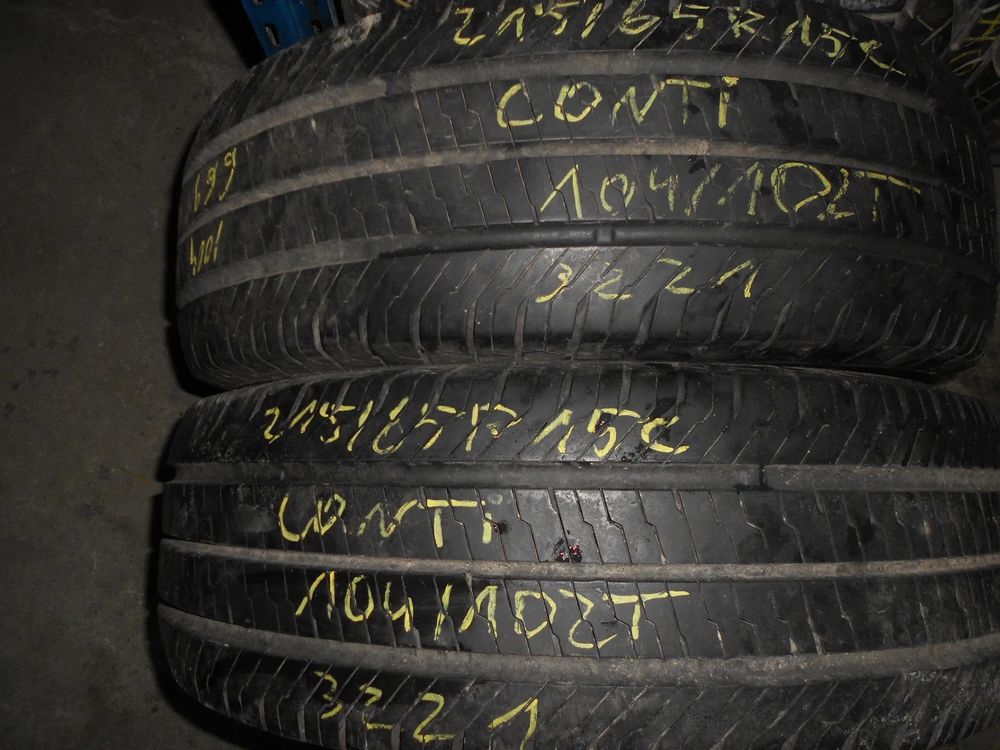 215/65R15C
CONTi
104/102T
3221
215/65R15C
CONTi
104/102T
3221